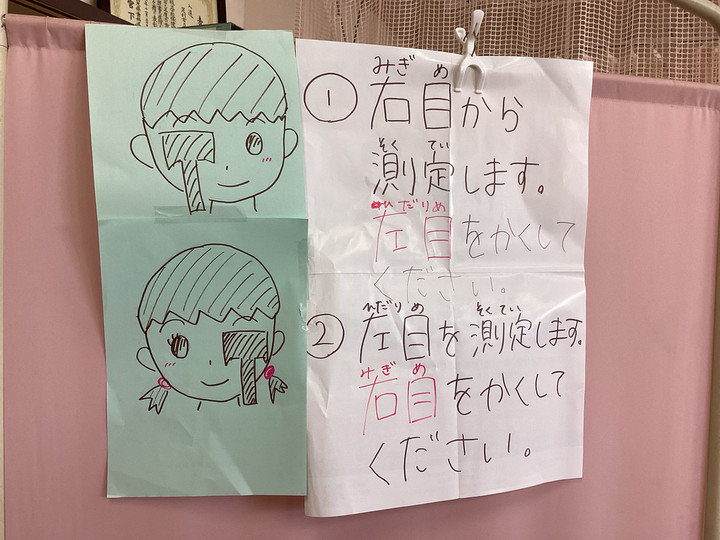 ① 右目から
みぎ め
測定します。
そく てい
左目をかくして
ひだりめ
ください。
② 左目を測定します。
ひだり め そくてい
右目をかくして
みぎ め
ください。